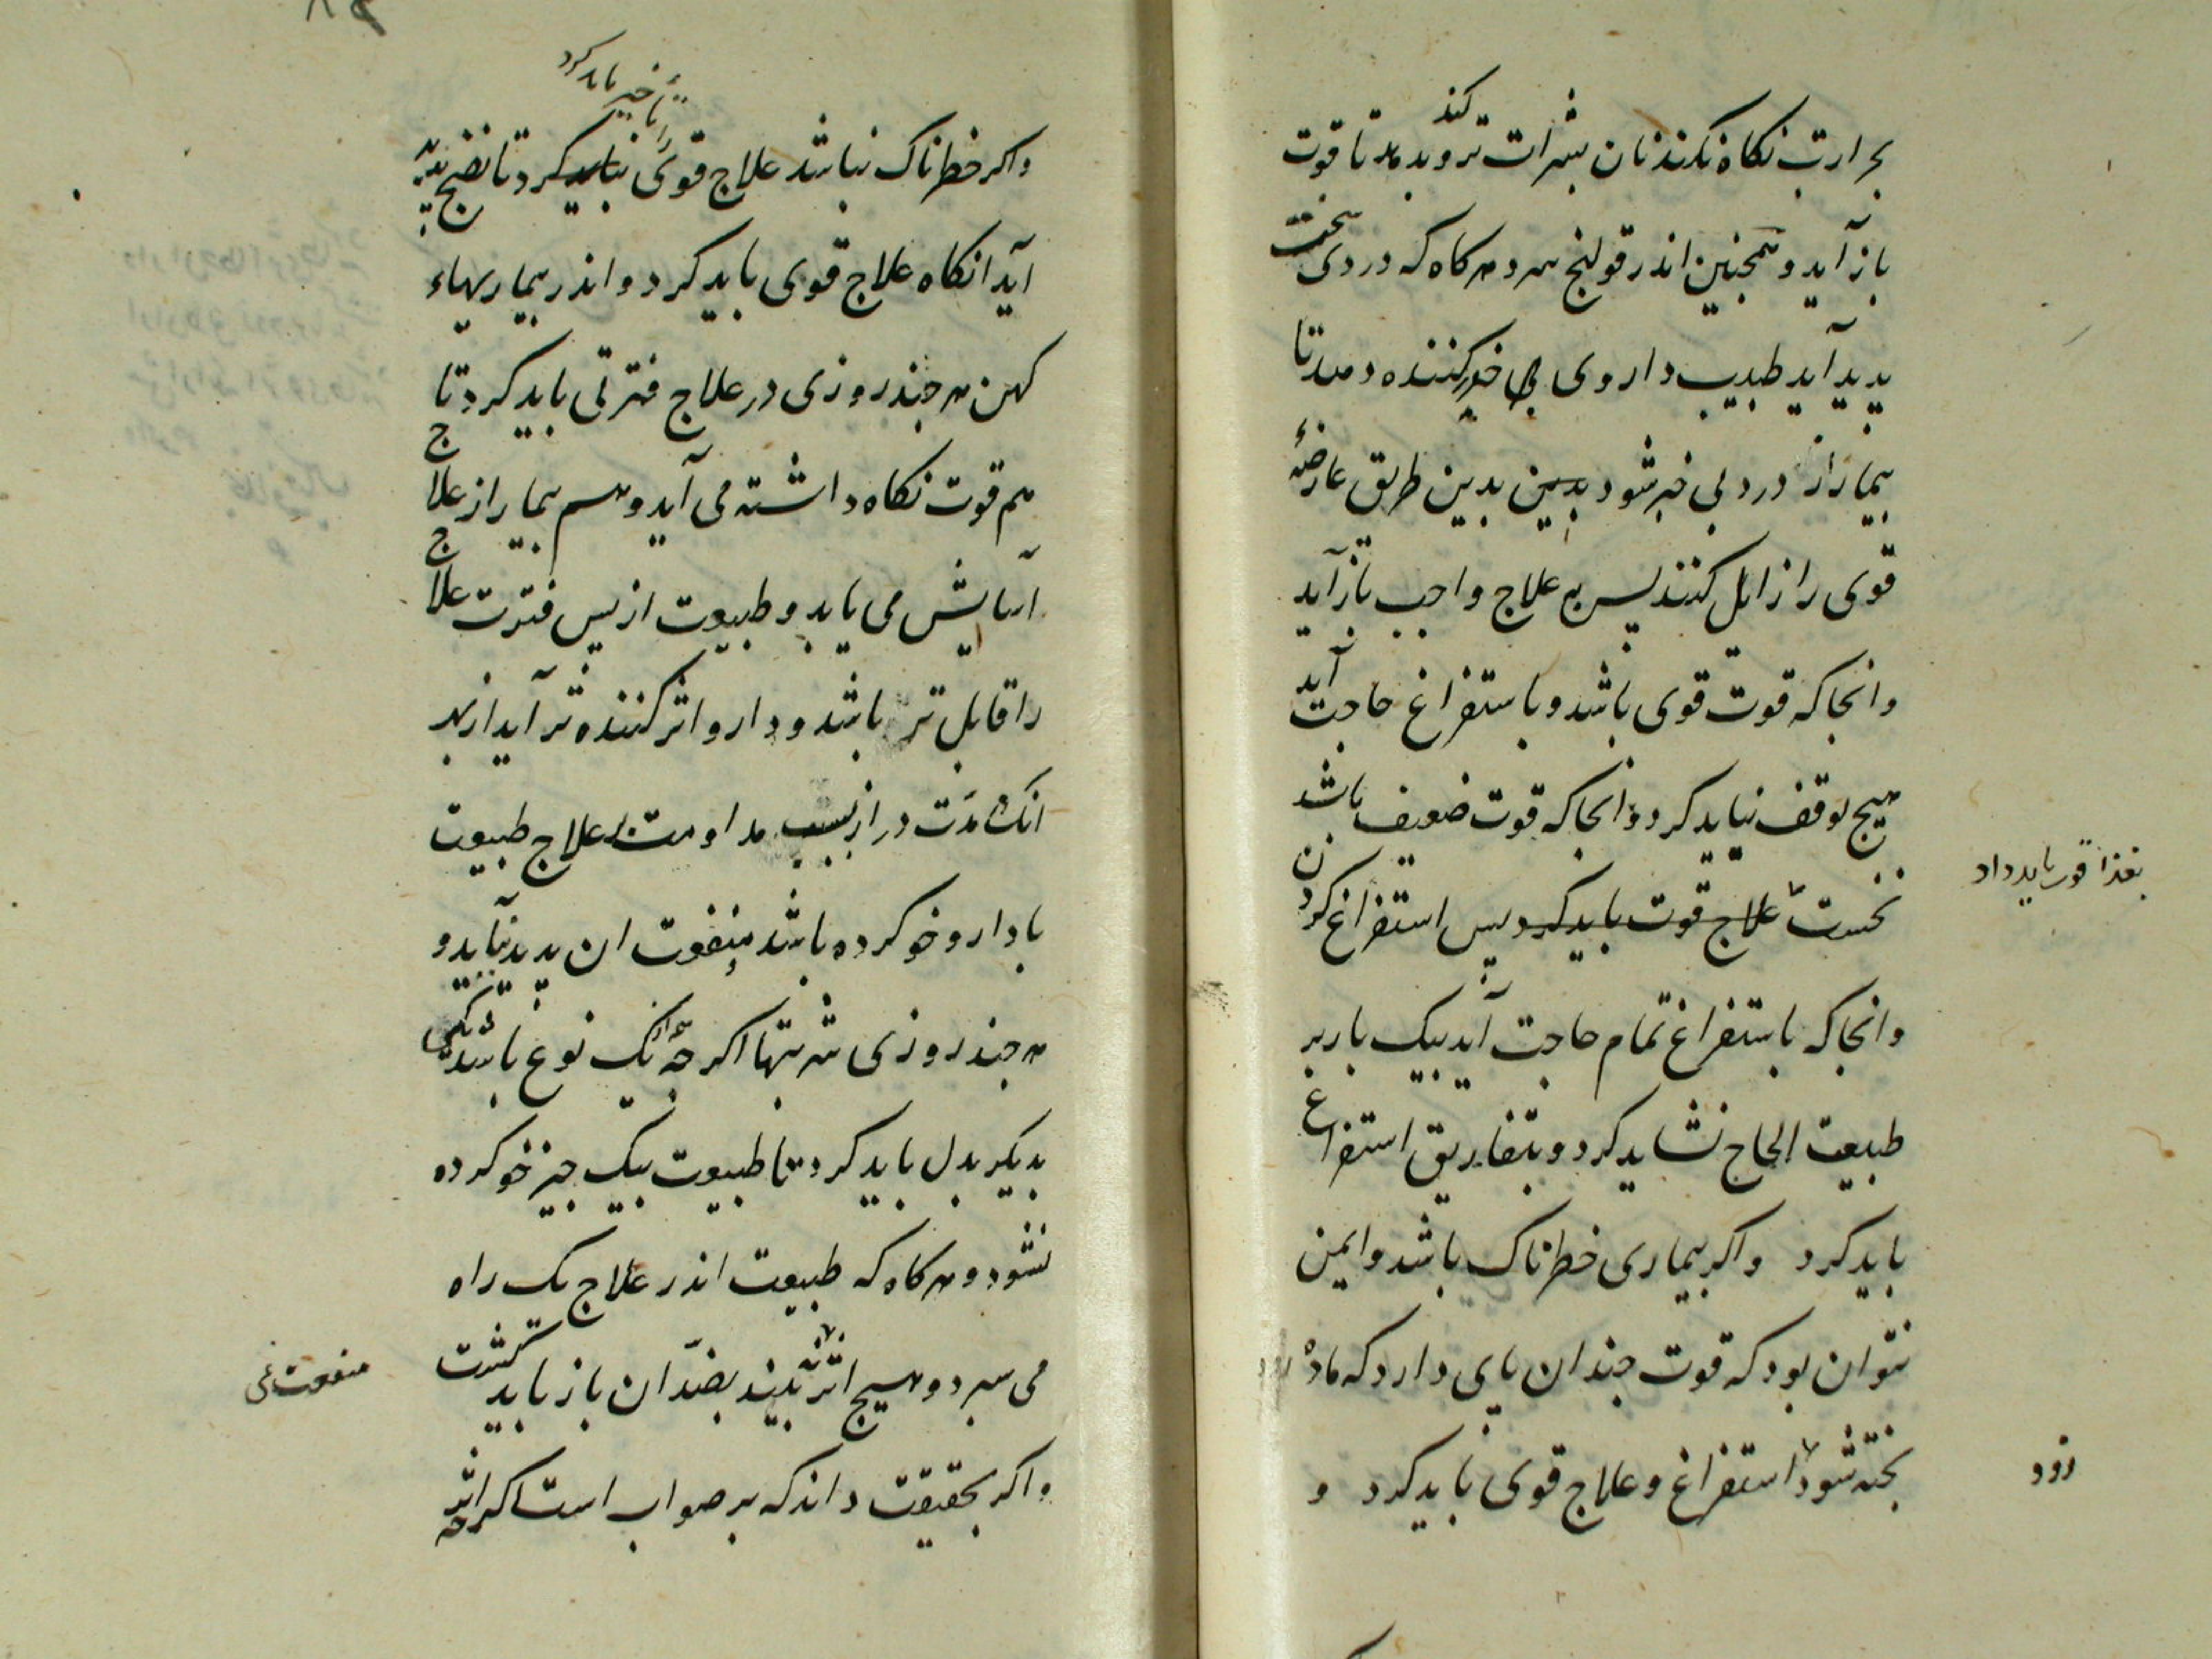 بحرارت نکاه نکند نان بشراب تر کند و بدهد تا قوت
باز آید و همجنین اندر قولنج سرد هرکاه که دردی سخت
بدید آید طبیب داروی بی خبر کننده دهد تا
بیمار از درد بی خبر شود بدین طریق عارضهٔ
قوی را زایل کنند بس به علاج واجب باز آید
وانجا که قوت قوی باشد و باستفراغ حاجت آید
هیج توقف نباید کرد وانجا که قوت ضعیف باشد
نخست علاج قوت باید کرد بس استفراغ کردن
بغذا قوت باید داد
وانجا که باستفراغ تمام حاجت آید بیک بار بر
طبیعت الحاح نشاید کرد و بتفاریق استفراغ
باید کرد واکر بیماری خطرناک باشد وایمن
نتوان بود که قوت جندان بای دارد که مادهٔ
بخته شود استفراغ و علاج قوی باید کرد و
زود
تأخیر باید کرد
واکر خطرناک نباشد علاج قوی نباید کرد تا نضج بدید
آید انکاه علاج قوی باید کرد و اندر بیماریهاء
کهن هر جند روزی در علاج فترتی باید کرد تا
هم قوت نکاه داشته می آید و هم بیمار از علاج
آسایش می یابد و طبیعت از بس فترت علاج
را قابل تر باشد و دارو اثر کننده تر آید از بهر
انک مدت دراز بسبب مداومت علاج طبیعت
با دارو خو کرده باشد منفعت ان بدید نیاید و
هر جند روزی شربتها اکر جه از یک نوع باشد یکی
بدیکر بدل باید کرد تا طبیعت بیک جیز خو کرده
نشود و هرکاه که طبیعت اندر علاج یک راه
می سبرد و هیج اثر نبیند بضد ان باز باید کشت
منفعت نمی
واکر بحقیقت داند که بر صواب است اکر جه اثر